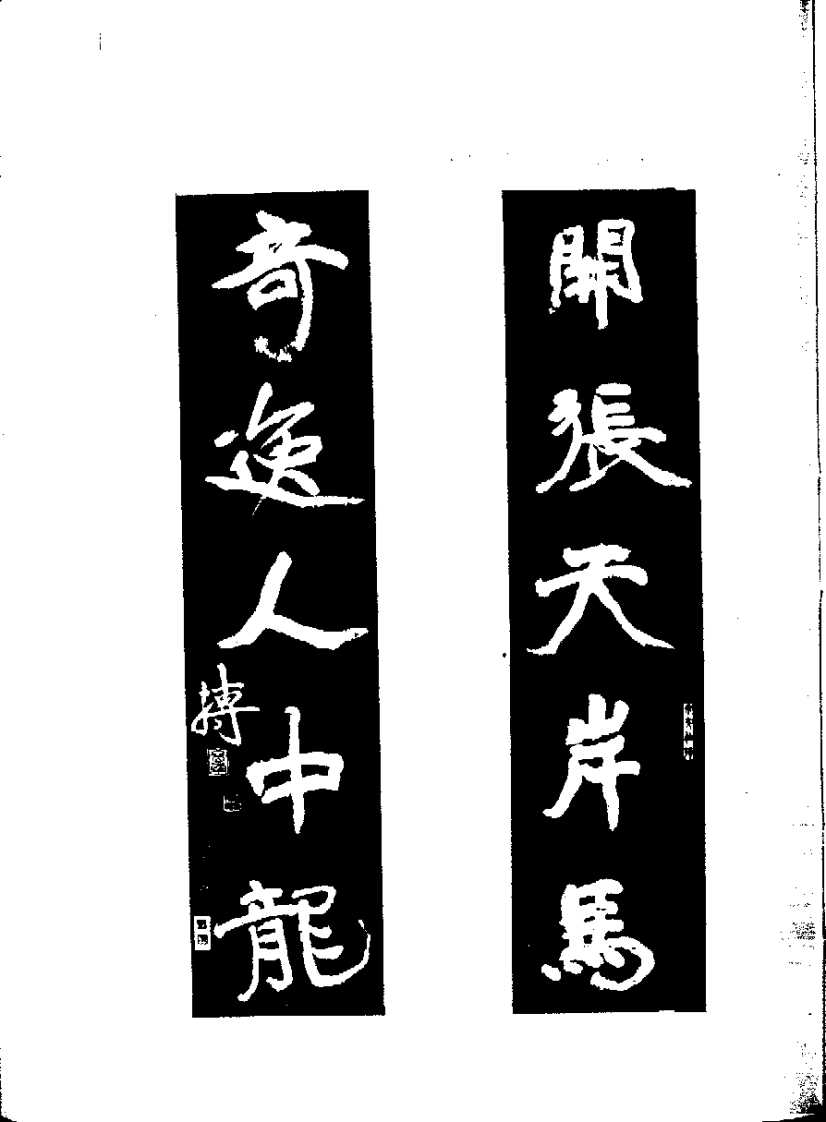 開張天岸馬
奇逸人中龍
摶